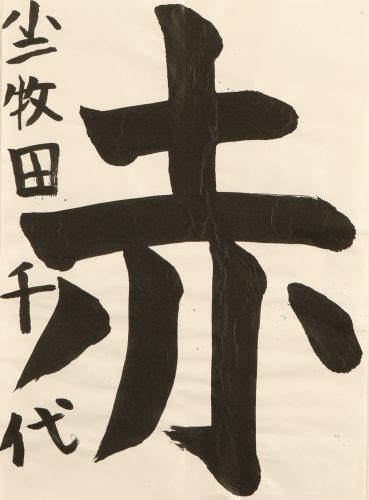 赤
小二 牧田 千代